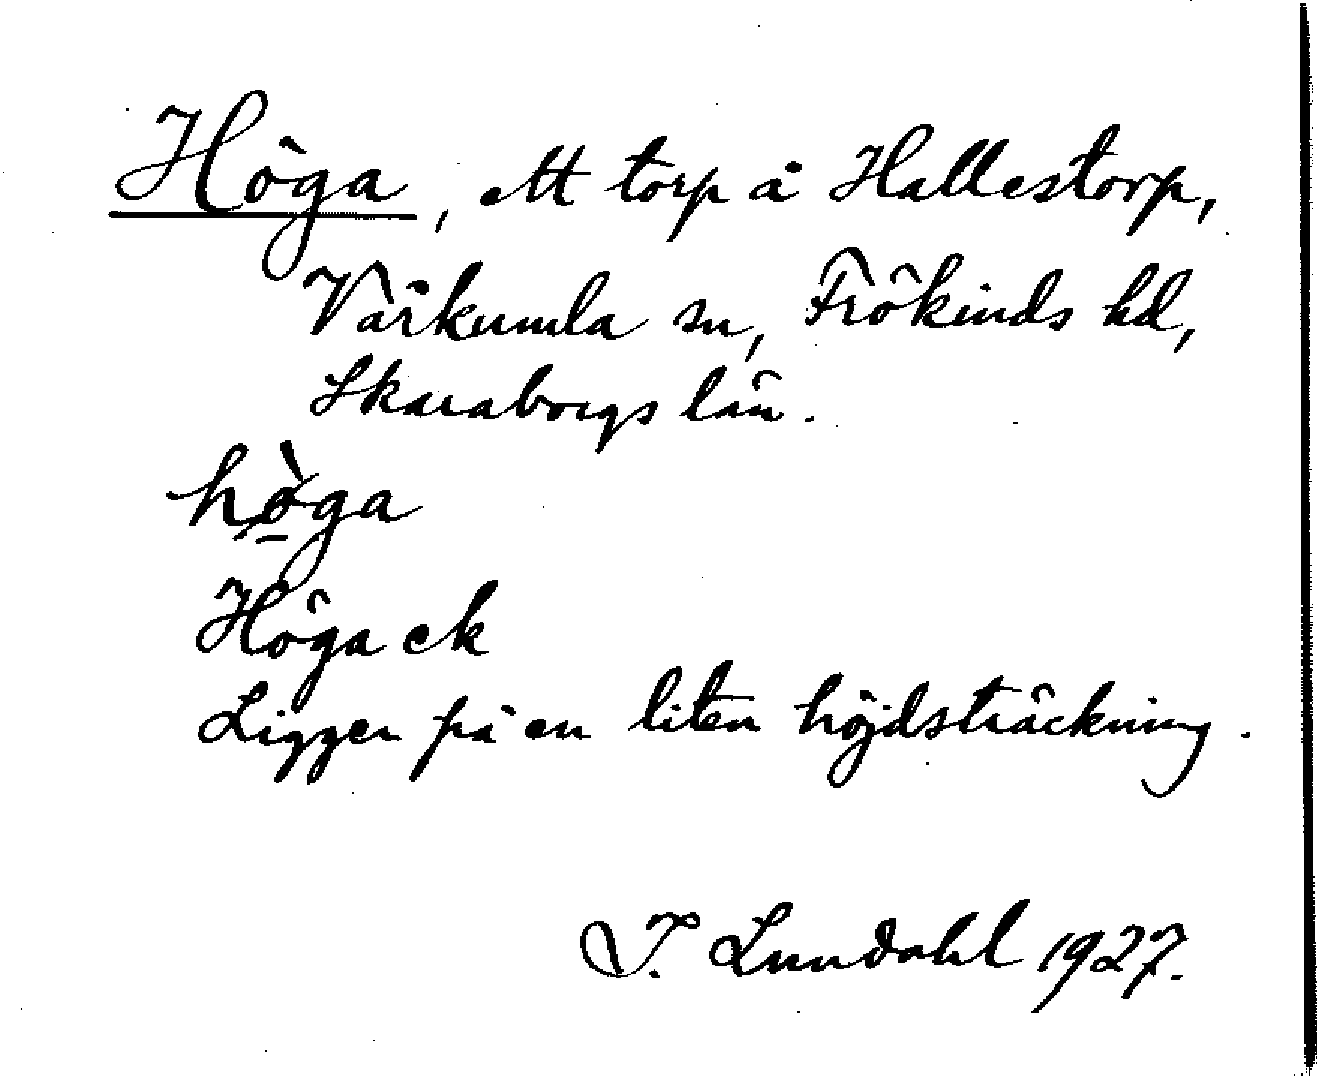 Höga, ett torp å Hallestorp,
Vårkumla sn, Frökinds hd,
Skaraborgs län.
hø̀ga
Höga ek
Ligger på en liten höjdsträckning.
I. Lundahl 1927.